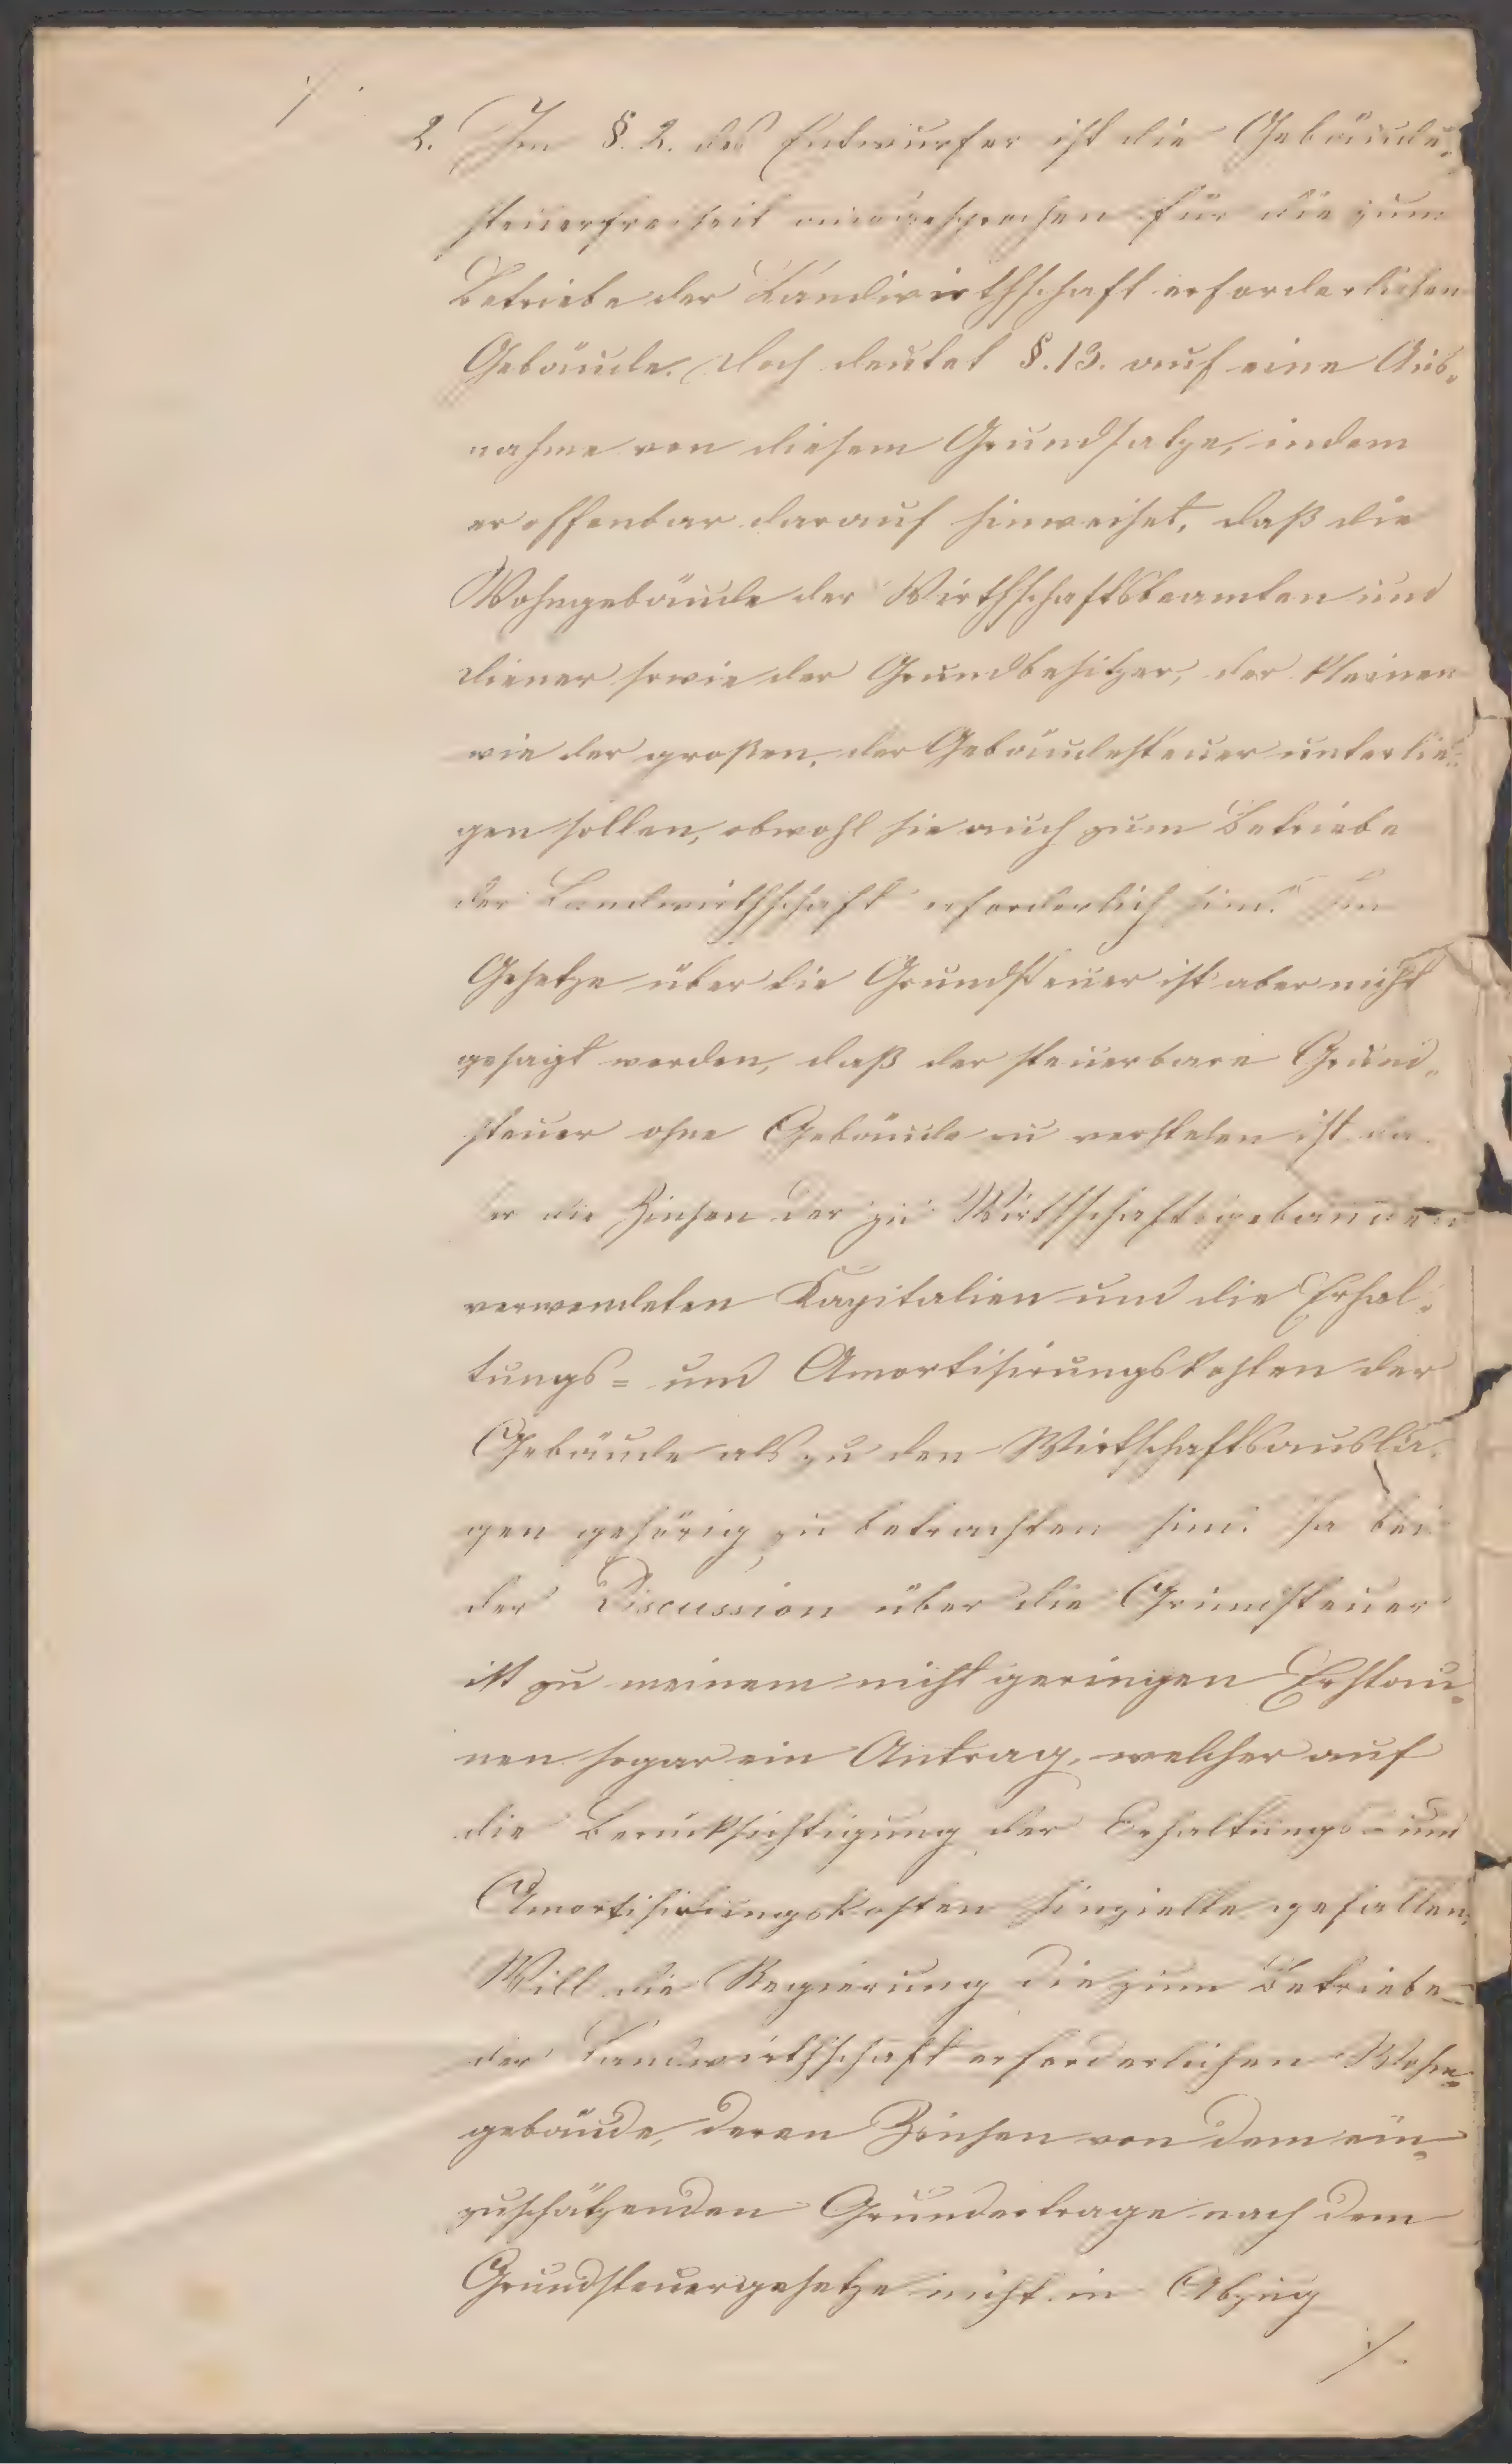 2. Im §. 2. des Entwurfes ist die Gebäude-
steuerfreiheit ausgesprochen für die zum
Betriebe der Landwirthschaft erforderlichen
Gebäude. Doch deutet §. 13. auf eine Aus-
nahme von diesem Grundsatze, indem
er offenbar darauf hinweiset, daß die
Wohngebäude der Wirthschaftsbeamten und
Diener sowie der Grundbesitzer, der kleinen
wie der großen, der Gebäudesteuer unterlie-
gen sollen, obwohl sie auch zum Betriebe
der Landwirthschaft erforderlich sind. Im
Gesetze über die Grundsteuer ist aber nicht
gesagt worden, daß der steuerbare Grund-
steuer ohne Gebäude zu verstehen ist
die Zinsen der zu Wirthschaftsgebäuden
verwendeten Kapitalien und die Erhal-
tungs= und Amortisirungskosten der
Gebäude als zu den Wirtschaftsausla-
gen gehörig zu betrachten sind. Ja bei
der Discussion über die Grundsteuer
ist zu meinem nicht geringen Erstau-
nen sogar ein Antrag, welcher auf
die Berücksichtigung der Erhaltungs- und
Amortisirungskosten hinzielte gefallen.
Will die Regierung die zum Betriebe
der Landwirthschaft erforderlichen Wohn-
gebäude, deren Zinsen von dem ein-
zuschätzenden Grundertrage nach dem
Grundsteuergesetze nicht in Abzug
./.